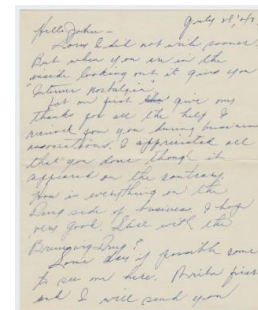 July 28,
Hello John—
Sorry I did not write sooner.
But when you are in the
inside looking out it gives you
"
Let me first give my
thanks for all the help I
you you during business
associations. I appreciated all
that you done though it
appeared on the contrary.
How is everything on the
Drug side of business, I hope
very good. Still with the
Drug?
Some day if possible come
to see me here. Write first
and I will send you